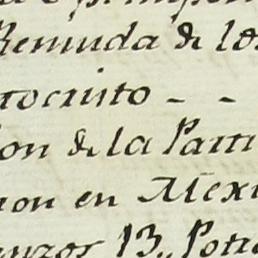 Remuda de lo
rocinto - -
on de la Parti
on en Mexi
enzos 13,, Potr